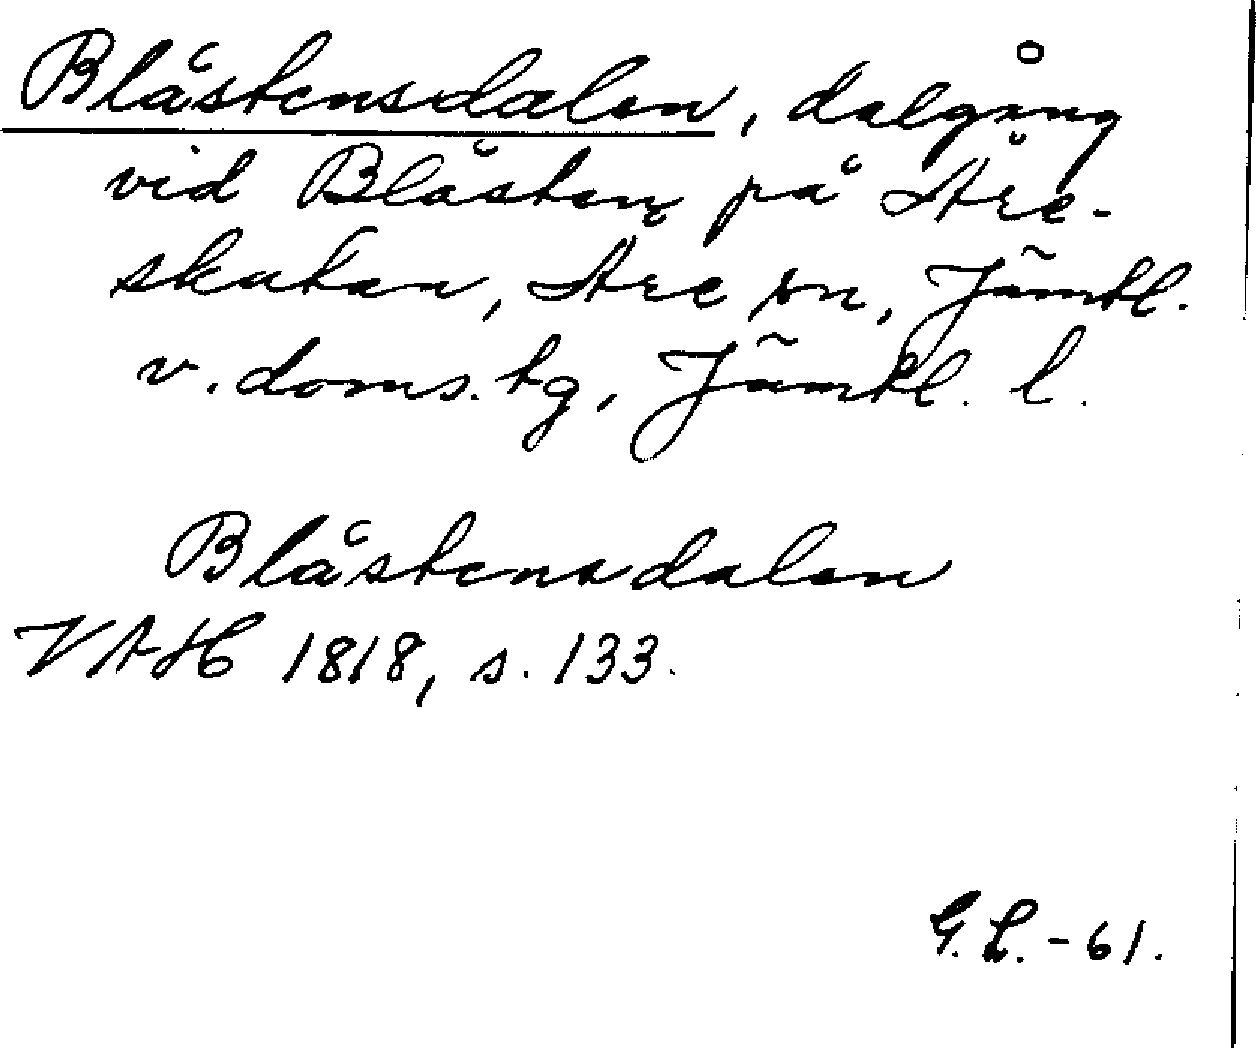 Blåstensdalen, dalgång
vid Blåsten på Åre-
skutan, Åre sn, Jämtl.
v. doms. tg, Jämtl. l.
Blåstensdalen
VAH 1818, s. 133.
G.L.-61.